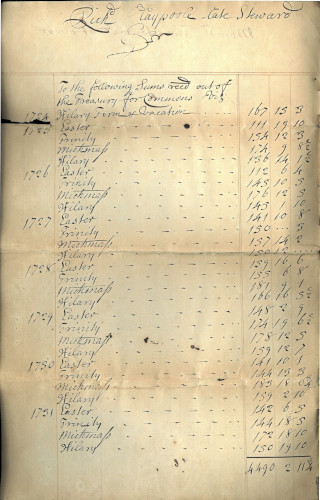 Rich.d Caypoole late Steward
Dr.
To the following Sums recd out of
the Treasury for Commons Viz
1724 Hilary Term & Vacation - - 167 15 3
1725 Easter - - 111 19 10
Trinity - - 154 12 3
Mickmass - - 174 9 8½
Hilary - - 136 14 1½
1726 Easter - - 112 6 4
Trinity - - 143 10 3
Mickmass - - 176 12 3
Hilary - - 143 1 10
1727 Easter - - 141 10 8
Trinity - - 150 - 3
Mickmass - - 157 14 2
Hilary - -
1728 Easter - - 139 16 6
Trinity - - 155 6 8
Mickmass - - 181 9 1
Hilary - - 166 16 5½
1729 Easter - - 148 2 9
Trinity - - 174 19 6½
Mickmass - - 178 12 3
Hilary - - 159 12 7
1730 Easter - - 141 10 1
Trinity - - 144 13 3
Mickmass - - 183 18 8¾
Hilary - - 159 2 10
1731 Easter - - 142 6 5
Trinity - - 144 18 3
Mickmass - - 172 18 10
Hilary - - 150 19 10
4490 2 11¼